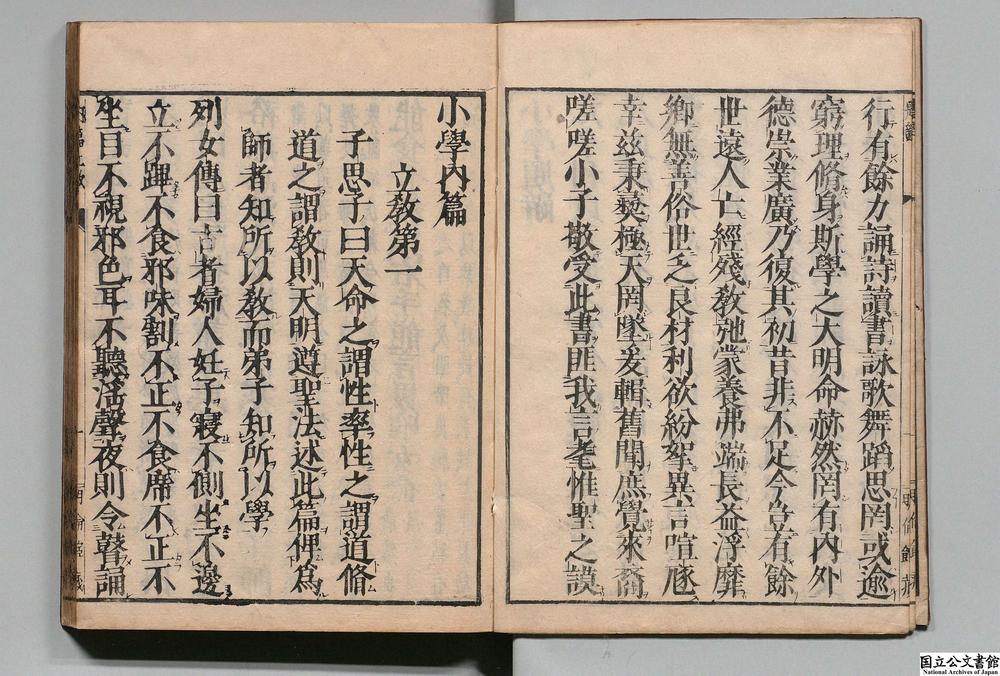 行有餘力誦詩讀書詠歌舞蹈思罔或逾
窮理脩身斯學之大明命赫然罔有内外
德崇業廣乃復其初昔非不足今豈有餘
世遠人亡經殘教弛蒙養弗端長益浮靡
鄉無善俗世乏良材利欲紛挐異言喧豗
幸茲秉彝極天罔墜爰輯舊聞庶覺來裔
嗟嗟小子敬受此書匪我言耄惟聖之謨
小學内篇
立教第一
子思子曰天命之謂性率性之謂道脩
道之謂教則天明遵聖法述此篇俾爲
師者知所以教而弟子知所以學
列女傳曰古者婦人妊子寢不側坐不邊
立不蹕不食邪味割不正不食席不正不
坐目不視邪色耳不聽淫聲夜則令瞽誦
国立公文書館
National Archives of Japan